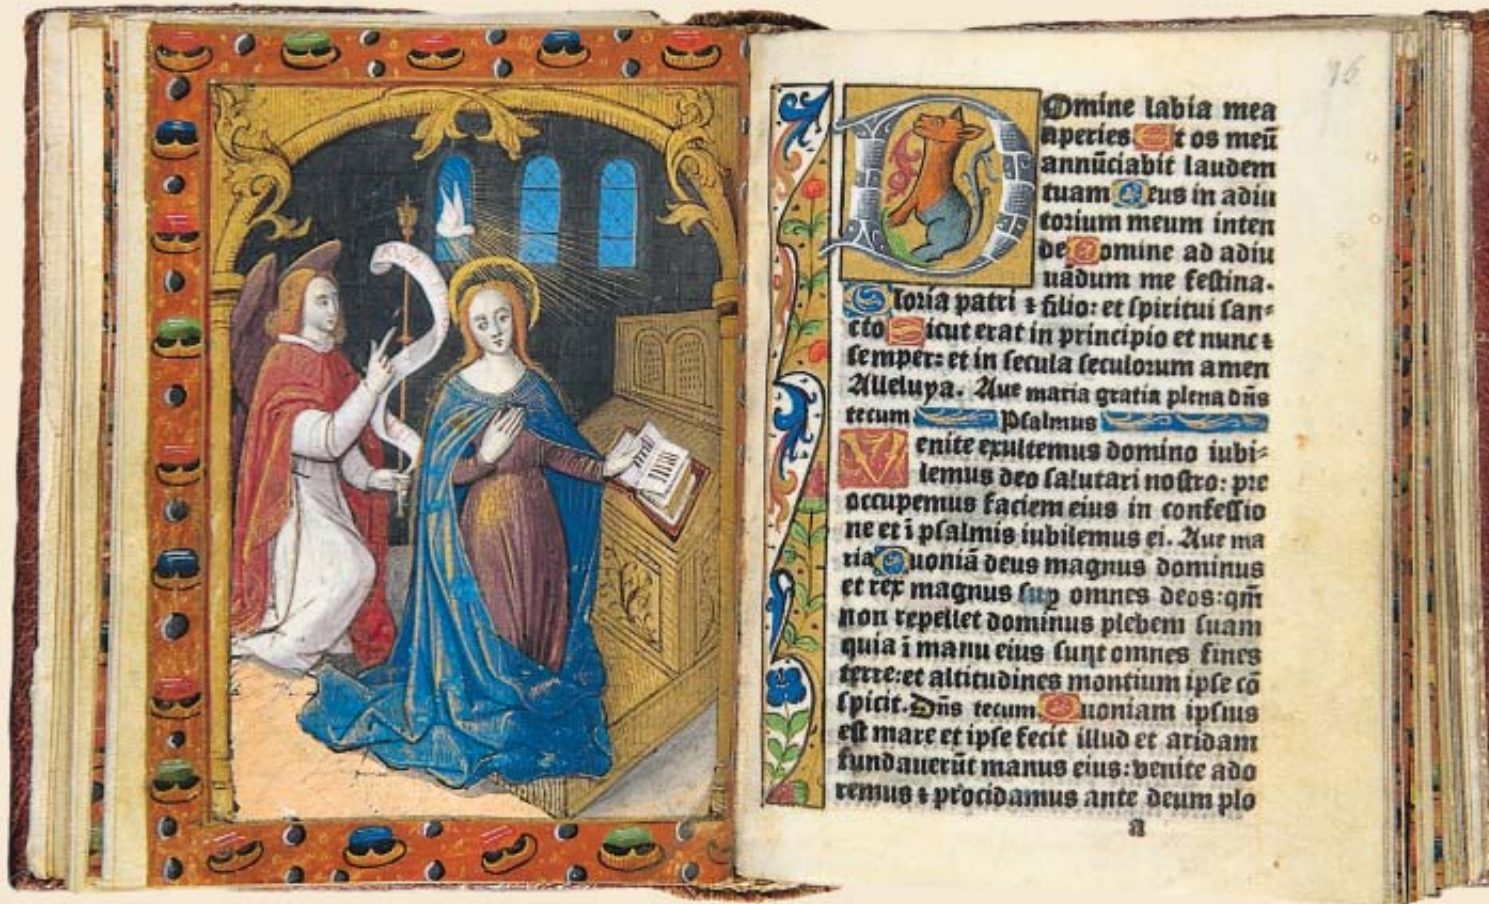 16
Domine labia mea
aperies Et os meū
annūciabit laudem
tuam Deus in adiu
torium meum inten
de Domine ad adiu
uādum me festina.
Gloria patri ⁊ filio: et spiritui san⸗
cto Sicut erat in principio et nunc ⁊
semper: et in secula seculorum amen
Alleluya. Aue maria gratia plena dn̄s
tecum Psalmus
Venite exultemus domino iubi⸗
lemus deo salutari nostro: pre
occupemus faciem eius in confessio
ne et ī psalmis iubilemus ei. Aue ma
ria Quoniā deus magnus dominus
et rex magnus suꝑ omnes deos: qm̄
non repellet dominus plebem suam
quia ī manu eius sunt omnes fines
terre: et altitudines montium ipse cō
spicit. Dn̄s tecum. Quoniam ipsius
est mare et ipse fecit illud et aridam
fundauerūt manus eius: venite ado
remus ⁊ procidamus ante deum plo
a